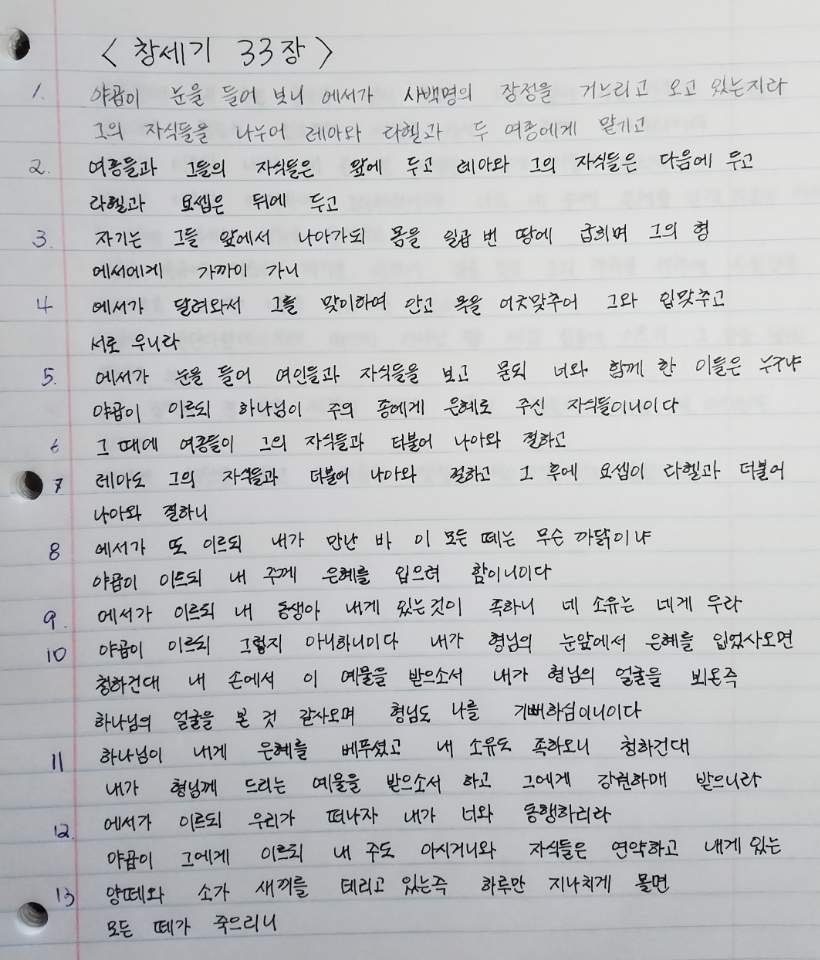 < 창세기 33장 >
1. 야곱이 눈을 들어 보니 에서가 사백명의 장정을 거느리고 오고 있는지라
그의 자식들을 나누어 레아와 라헬과 두 여종에게 맡기고
2. 여종들과 그들의 자식들은 앞에 두고 레아와 그의 자식들은 다음에 두고
라헬과 요셉은 뒤에 두고
3. 자기는 그들 앞에서 나아가되 몸을 일곱 번 땅에 굽히며 그의 형
에서에게 가까이 가니
4 에서가 달려와서 그를 맞이하여 안고 목을 어긋맞추어 그와 입맞추고
서로 우니라
5. 에서가 눈을 들어 여인들과 자식들을 보고 묻되 너와 함께 한 이들은 누구냐
야곱이 이르되 하나님이 주의 종에게 은혜로 주신 자식들이니이다
6 그 때에 여종들이 그의 자식들과 더불어 나아와 절하고
7 레아도 그의 자식들과 더불어 나아와 절하고 그 후에 요셉이 라헬과 더불어
나아와 절하니
8 에서가 또 이르되 내가 만난 바 이 모든 떼는 무슨 까닭이냐
야곱이 이르되 내 주께 은혜를 입으려 함이니이다
9. 에서가 이르되 내 동생아 내게 있는것이 족하니 네 소유는 네게 두라
10 야곱이 이르되 그렇지 아니하니이다 내가 형님의 눈앞에서 은혜를 입었사오면
청하건대 내 손에서 이 예물을 받으소서 내가 형님의 얼굴을 뵈온즉
하나님의 얼굴을 본 것 같사오며 형님도 나를 기뻐하심이니이다
11 하나님이 내게 은혜를 베푸셨고 내 소유도 족하오니 청하건대
내가 형님께 드리는 예물을 받으소서 하고 그에게 강권하매 받으니라
12. 에서가 이르되 우리가 떠나자 내가 너와 동행하리라
야곱이 그에게 이르되 내 주도 아시거니와 자식들은 연약하고 내게 있는
13 양떼와 소가 새끼를 데리고 있는즉 하루만 지나치게 몰면
모든 떼가 죽으리니